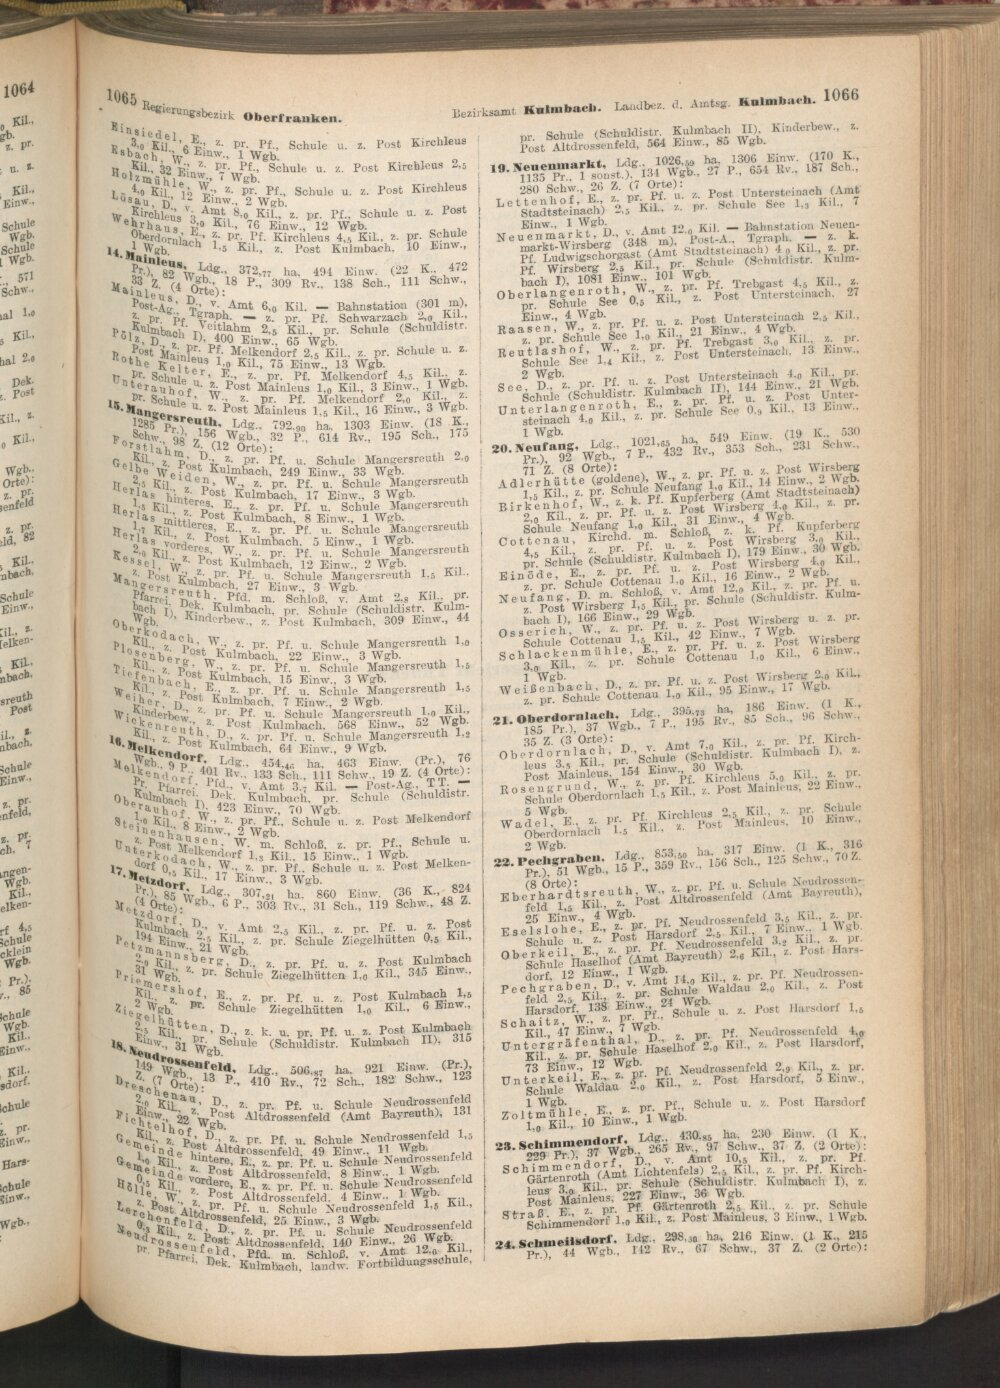 1065 Regierungsbezirk Oberfranken.
Einsiedel, E., z. pr. Pf., Schule u. z. Post Kirchleus
3,0 Kil., 6 Einw., 1 Wgb.
Esbach, W., z. pr. Pf., Schule u. z. Post Kirchleus 2,5
Kil., 32 Einw., 7 Wgb.
Holzmühle, W., z. pr. Pf., Schule u. z. Post Kirchleus
4,0 Kil., 12 Einw., 2 Wgb.
Lösau, D., v. Amt 8,0 Kil., z. pr. Pf., Schule u. z. Post
Kirchleus 3,0 Kil., 76 Einw., 12 Wgb.
Wehrhaus, E., z. pr. Pf. Kirchleus 4,5 Kil., z. pr. Schule
Oberdornlach 1,5 Kil., z. Post Kulmbach, 10 Einw.,
1 Wgb.
14. Mainleus, Ldg., 372,77 ha, 494 Einw. (22 K., 472
Pr.), 82 Wgb., 18 P., 309 Rv., 138 Sch., 111 Schw.,
33 Z. (4 Orte):
Mainleus, D., v. Amt 6,0 Kil. — Bahnstation (301 m),
Post-Ag., Tgraph. — z. pr. Pf. Schwarzach 2,0 Kil.,
z. pr. Pf. Veitlahm 2,5 Kil., pr. Schule (Schuldistr.
Kulmbach I), 400 Einw., 65 Wgb.
Pölz, D., z. pr. Pf. Melkendorf 2,5 Kil., z. pr. Schule u. z.
Post Mainleus 1,0 Kil., 75 Einw., 13 Wgb.
Rothe Kelter, E., z. pr. Pf. Melkendorf 4,5 Kil., z.
pr. Schule u. z. Post Mainleus 1,0 Kil., 3 Einw., 1 Wgb.
Unterauhof, W., z. pr. Pf. Melkendorf 2,0 Kil., z.
pr. Schule u. z. Post Mainleus 1,5 Kil., 16 Einw., 3 Wgb.
15. Mangersreuth, Ldg., 792,90 ha, 1303 Einw. (18 K.,
1285 Pr.), 156 Wgb., 32 P., 614 Rv., 195 Sch., 175
Schw., 98 Z. (12 Orte):
Forstlahm, D., z. pr. Pf. u. Schule Mangersreuth 2,0
Kil., z. Post Kulmbach, 249 Einw., 33 Wgb.
Gelbe Weiden, W., z. pr. Pf. u. Schule Mangersreuth
2,5 Kil., z. Post Kulmbach, 17 Einw., 3 Wgb.
Herlas hinteres, E., z. pr. Pf. u. Schule Mangersreuth
1,5 Kil., z. Post Kulmbach, 8 Einw., 1 Wgb.
Herlas mittleres, E., z. pr. Pf. u. Schule Mangersreuth
1,7 Kil., z. Post Kulmbach, 5 Einw., 1 Wgb.
Herlas vorderes, W., z. pr. Pf. u. Schule Mangersreuth
2,0 Kil., z. Post Kulmbach, 12 Einw., 2 Wgb.
Kessel, W., z. pr. Pf. u. Schule Mangersreuth 1,5 Kil.,
z. Post Kulmbach, 27 Einw., 3 Wgb.
Mangersreuth, Pfd. m. Schloß, v. Amt 2,8 Kil., pr.
Pfarrei, Dek. Kulmbach, pr. Schule (Schuldistr. Kulm-
bach I), Kinderbew., z. Post Kulmbach, 309 Einw., 44
Wgb.
Oberkodach, W., z. pr. Pf. u. Schule Mangersreuth 1,0
Kil., z. Post Kulmbach, 22 Einw., 3 Wgb.
Plosenberg, W., z. pr. Pf. u. Schule Mangersreuth 1,5
Kil., z. Post Kulmbach, 15 Einw., 3 Wgb.
Tiefenbach, E., z. pr. Pf. u. Schule Mangersreuth 1,5
Kil., z. Post Kulmbach, 7 Einw., 2 Wgb.
Weiher, D., z. pr. Pf. u. Schule Mangersreuth 1,0 Kil.,
Kinderbew., z. Post Kulmbach, 568 Einw., 52 Wgb.
Wickenreuth, D., z. pr. Pf. u. Schule Mangersreuth 1,2
Kil., z. Post Kulmbach, 64 Einw., 9 Wgb.
16. Melkendorf, Ldg., 454,46 ha, 463 Einw. (Pr.), 76
Wgb., 9 P., 401 Rv., 133 Sch., 111 Schw., 19 Z. (4 Orte):
Melkendorf, Pfd., v. Amt 3,7 Kil. — Post-Ag., TT. —
Pr. Pfarrei, Dek. Kulmbach, pr. Schule (Schuldistr.
Kulmbach I), 423 Einw., 70 Wgb.
Oberauhof, W., z. pr. Pf., Schule u. z. Post Melkendorf
1,0 Kil., 8 Einw., 2 Wgb.
Steinenhausen, W. m. Schloß, z. pr. Pf., Schule u.
z. Post Melkendorf 1,3 Kil., 15 Einw., 1 Wgb.
Unterkodach, W., z. pr. Pf., Schule u. z. Post Melken-
dorf 0,5 Kil., 17 Einw., 3 Wgb.
17. Metzdorf, Ldg., 307,21 ha, 860 Einw. (36 K., 824
Pr.), 85 Wgb., 6 P., 303 Rv., 31 Sch., 119 Schw., 48 Z.
(4 Orte):
Metzdorf, D., v. Amt 2,5 Kil., z. pr. Pf. u. z. Post
Kulmbach 2,5 Kil., z. pr. Schule Ziegelhütten 0,5 Kil.,
194 Einw., 21 Wgb.
Petzmannsberg, D., z. pr. Pf. u. z. Post Kulmbach
2,0 Kil., z. pr. Schule Ziegelhütten 1,0 Kil., 345 Einw.,
31 Wgb.
Priemershof, E., z. pr. Pf. u. z. Post Kulmbach 1,5
Kil., z. pr. Schule Ziegelhütten 1,0 Kil., 6 Einw.,
2 Wgb.
Ziegelhütten, D., z. k. u. pr. Pf. u. z. Post Kulmbach
2,5 Kil., pr. Schule (Schuldistr. Kulmbach II), 315
Einw., 31 Wgb.
18. Neudrossenfeld, Ldg., 506,87 ha, 921 Einw. (Pr.),
149 Wgb., 13 P., 410 Rv., 72 Sch., 182 Schw., 123
Z. (7 Orte):
Dreschenau, D., z. pr. Pf. u. Schule Neudrossenfeld
2,0 Kil., z. Post Altdrossenfeld (Amt Bayreuth), 131
Einw., 22 Wgb.
Fichtelhof, D., z. pr. Pf. u. Schule Neudrossenfeld 1,5
Kil., z. Post Altdrossenfeld, 49 Einw., 11 Wgb.
Gemeinde hintere, E., z. pr. Pf. u. Schule Neudrossenfeld
1,0 Kil., z. Post Altdrossenfeld, 8 Einw., 1 Wgb.
Gemeinde vordere, E., z. pr. Pf. u. Schule Neudrossenfeld
0,5 Kil., z. Post Altdrossenfeld, 4 Einw., 1 Wgb.
Hölle, W., z. pr. Pf. u. Schule Neudrossenfeld 1,5 Kil.,
z. Post Altdrossenfeld, 25 Einw., 3 Wgb.
Lerchenfeld, D., z. pr. Pf. u. Schule Neudrossenfeld
0,3 Kil., z. Post Altdrossenfeld, 140 Einw., 26 Wgb.
Neudrossenfeld, Pfd. m. Schloß, v. Amt 12,0 Kil.,
pr. Pfarrei, Dek. Kulmbach, landw. Fortbildungsschule,
Bezirksamt Kulmbach. Landbez. d. Amtsg. Kulmbach. 1066
pr. Schule (Schuldistr. Kulmbach II), Kinderbew., z.
Post Altdrossenfeld, 564 Einw., 85 Wgb.
19. Neuenmarkt, Ldg., 1026,59 ha, 1306 Einw. (170 K.,
1135 Pr., 1 sonst.), 134 Wgb., 27 P., 654 Rv., 187 Sch.,
280 Schw., 26 Z. (7 Orte):
Lettenhof, E., z. pr. Pf. u. z. Post Untersteinach (Amt
Stadtsteinach) 2,5 Kil., z. pr. Schule See 1,3 Kil., 7
Einw., 1 Wgb.
Neuenmarkt, D., v. Amt 12,0 Kil. — Bahnstation Neuen-
markt-Wirsberg (348 m), Post-A., Tgraph. — z. k.
Pf. Ludwigschorgast (Amt Stadtsteinach) 4,0 Kil., z. pr.
Pf. Wirsberg 2,5 Kil., pr. Schule (Schuldistr. Kulm-
bach I), 1081 Einw., 101 Wgb.
Oberlangenroth, W., z. pr. Pf. Trebgast 4,5 Kil., z.
pr. Schule See 0,5 Kil., z. Post Untersteinach, 27
Einw., 4 Wgb.
Raasen, W., z. pr. Pf. u. z. Post Untersteinach 2,5 Kil.,
z. pr. Schule See 1,0 Kil., 21 Einw., 4 Wgb.
Reutlashof, W., z. pr. Pf. Trebgast 3,0 Kil., z. pr.
Schule See 1,4 Kil., z. Post Untersteinach, 13 Einw.,
2 Wgb.
See, D., z. pr. Pf. u. z. Post Untersteinach 4,0 Kil., pr.
Schule (Schuldistr. Kulmbach II), 144 Einw., 21 Wgb.
Unterlangenroth, E., z. pr. Pf. u. z. Post Unter-
steinach 4,0 Kil., z. pr. Schule See 0,9 Kil., 13 Einw.,
1 Wgb.
20. Neufang, Ldg., 1021,65 ha, 549 Einw. (19 K., 530
Pr.), 92 Wgb., 7 P., 432 Rv., 353 Sch., 231 Schw.,
71 Z. (8 Orte):
Adlerhütte (goldene), W., z. pr. Pf. u. z. Post Wirsberg
1,5 Kil., z. pr. Schule Neufang 1,0 Kil., 14 Einw., 2 Wgb.
Birkenhof, W., z. k. Pf. Kupferberg (Amt Stadtsteinach)
2,0 Kil., z. pr. Pf. u. z. Post Wirsberg 4,0 Kil., z. pr.
Schule Neufang 1,0 Kil., 31 Einw., 4 Wgb.
Cottenau, Kirchd. m. Schloß, z. k. Pf. Kupferberg
4,5 Kil., z. pr. Pf. u. z. Post Wirsberg 3,0 Kil.,
pr. Schule (Schuldistr. Kulmbach I), 179 Einw., 30 Wgb.
Einöde, E., z. pr. Pf. u. z. Post Wirsberg 4,0 Kil.,
z. pr. Schule Cottenau 1,0 Kil., 16 Einw., 2 Wgb.
Neufang, D. m. Schloß, v. Amt 12,0 Kil., z. pr. Pf. u.
z. Post Wirsberg 1,5 Kil., pr. Schule (Schuldistr. Kulm-
bach I), 166 Einw., 29 Wgb.
Osserich, W., z. pr. Pf. u. z. Post Wirsberg u. z. pr.
Schule Cottenau 1,5 Kil., 42 Einw., 7 Wgb.
Schlackenmühle, E., z. pr. Pf. u. z. Post Wirsberg
3,0 Kil., z. pr. Schule Cottenau 1,0 Kil., 6 Einw.,
1 Wgb.
Weißenbach, D., z. pr. Pf. u. z. Post Wirsberg 2,0 Kil.,
z. pr. Schule Cottenau 1,0 Kil., 95 Einw., 17 Wgb.
21. Oberdornlach, Ldg., 395,73 ha, 186 Einw. (1 K.,
185 Pr.), 37 Wgb., 7 P., 195 Rv., 85 Sch., 96 Schw.,
35 Z. (3 Orte):
Oberdornlach, D., v. Amt 7,0 Kil., z. pr. Pf. Kirch-
leus 3,5 Kil., pr. Schule (Schuldistr. Kulmbach I), z.
Post Mainleus, 154 Einw., 30 Wgb.
Rosengrund, W., z. pr. Pf. Kirchleus 5,0 Kil., z. pr.
Schule Oberdornlach 1,5 Kil., z. Post Mainleus, 22 Einw.,
5 Wgb.
Wadel, E., z. pr. Pf. Kirchleus 2,5 Kil., z. pr. Schule
Oberdornlach 1,5 Kil., z. Post Mainleus, 10 Einw.,
2 Wgb.
22. Pechgraben, Ldg., 853,50 ha, 317 Einw. (1 K., 316
Pr.), 51 Wgb., 15 P., 359 Rv., 156 Sch., 125 Schw., 70 Z.
(8 Orte):
Eberhardtsreuth, W., z. pr. Pf. u. Schule Neudrossen-
feld 1,5 Kil., z. Post Altdrossenfeld (Amt Bayreuth),
25 Einw., 4 Wgb.
Eselslohe, E., z. pr. Pf. Neudrossenfeld 3,5 Kil., z. pr.
Schule u. z. Post Harsdorf 2,5 Kil., 7 Einw., 1 Wgb.
Oberkeil, E., z. pr. Pf. Neudrossenfeld 3,2 Kil., z. pr.
Schule Haselhof (Amt Bayreuth) 2,6 Kil., z. Post Hars-
dorf, 12 Einw., 1 Wgb.
Pechgraben, D., v. Amt 14,0 Kil., z. pr. Pf. Neudrossen-
feld 2,5 Kil., z. pr. Schule Waldau 2,0 Kil., z. Post
Harsdorf, 138 Einw., 24 Wgb.
Schaitz, W., z. pr. Pf., Schule u. z. Post Harsdorf 1,5
Kil., 47 Einw., 7 Wgb.
Untergräfenthal, D., z. pr. Pf. Neudrossenfeld 4,0
Kil., z. pr. Schule Haselhof 2,0 Kil., z. Post Harsdorf,
73 Einw., 12 Wgb.
Unterkeil, E., z. pr. Pf. Neudrossenfeld 2,9 Kil., z. pr.
Schule Waldau 2,0 Kil., z. Post Harsdorf, 5 Einw.,
1 Wgb.
Zoltmühle, E., z. pr. Pf., Schule u. z. Post Harsdorf
1,0 Kil., 10 Einw., 1 Wgb.
23. Schimmendorf, Ldg., 430,85 ha, 230 Einw. (1 K.,
229 Pr.), 37 Wgb., 265 Rv., 97 Schw., 37 Z. (2 Orte):
Schimmendorf, D., v. Amt 10,5 Kil., z. pr. Pf.
Gärtenroth (Amt Lichtenfels) 2,5 Kil., z. pr. Pf. Kirch-
leus 3,0 Kil., pr. Schule (Schuldistr. Kulmbach I), z.
Post Mainleus, 227 Einw., 36 Wgb.
Straß, E., z. pr. Pf. Gärtenroth 2,5 Kil., z. pr. Schule
Schimmendorf 1,0 Kil., z. Post Mainleus, 3 Einw., 1 Wgb.
24. Schmeilsdorf, Ldg., 298,50 ha, 216 Einw. (1 K., 215
Pr.), 44 Wgb., 142 Rv., 67 Schw., 37 Z. (2 Orte):
1064